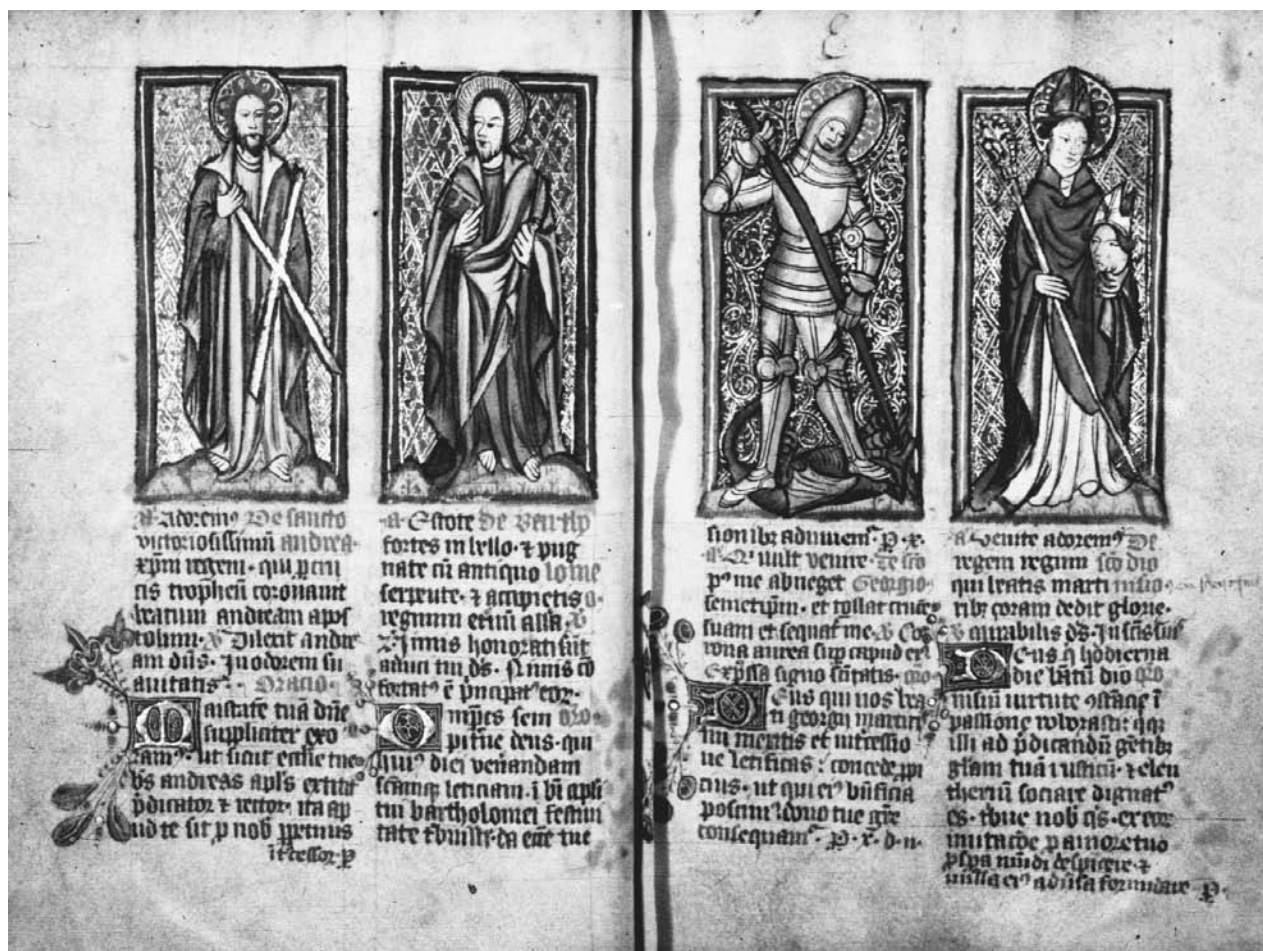 a Adorem⁹ De sancto
victoriosissimū andrea·
xp̄m regem· qui
cis tropheū coronauit
beatum andream apos
tolum· Dilexit andre
am dn̄s· In odorem su
auitatis· Oracio
Maiestatē tuā dn̄e
supliciter exo
ram⁹· ut sicut eccl̄ie tue
bs̄ andreas apl̄s extitit
p̄dicator et rector· ita ap
ud te sit p nob̄ ppetuus
īt̄cessor
a Estote de
fortes in bello· et pug
nate cū antiquo
serpente· et accipietis
regnum etn̄ū all̄a
Nimis honorati sūt
amici tui ds̄· Nimis cō
fortat⁹ ē p̄ncipat⁹ eor·
Omp̄s sem oro
pit̄ne deus· qui
hui⁹ diei ven̄andam
sc̄amq leticiam· ī bt̄i apl̄i
tui bartholomei festiui
tate t̄buisti· da ecc̄e tue
sionibz
a Qi vult venire· De sc̄o
p⁹ me abneget Georgio
semetip̄m· et tollat cruce
suam et sequat̄ me· Co
rona aurea sup capud ei⁹
Exp̄ssa signo sc̄itatis· oro
Deus qui nos bea
ti georgii martiris
tui meritis et int̄cessio
ne letificas : concede ppi
cius· ut qui ei⁹ bn̄ficia
poscim⁹ dono tue gr̄e
consequam̄· P· x· d· n·
a Venite adorem⁹ De
regem regum sc̄o dio
qui beatis marti nisio
ribz coram dedit glorie·
mirabilis ds̄· In sc̄is suis
Deus q̄ hodierna
die bt̄um dio oro
nisiū uirtute ɔstācie ī
passione roborasti· qq
illi ad p̄dicandū gētibz
glam tuā rusticū· et eleu
theriū sociare dignat⁹
es· t̄bue nob̄ qs· ex eor
imitac̄oe p amore tuo
pspa mūdi despicere· et
nulla ei⁹ adūsa formidare P·